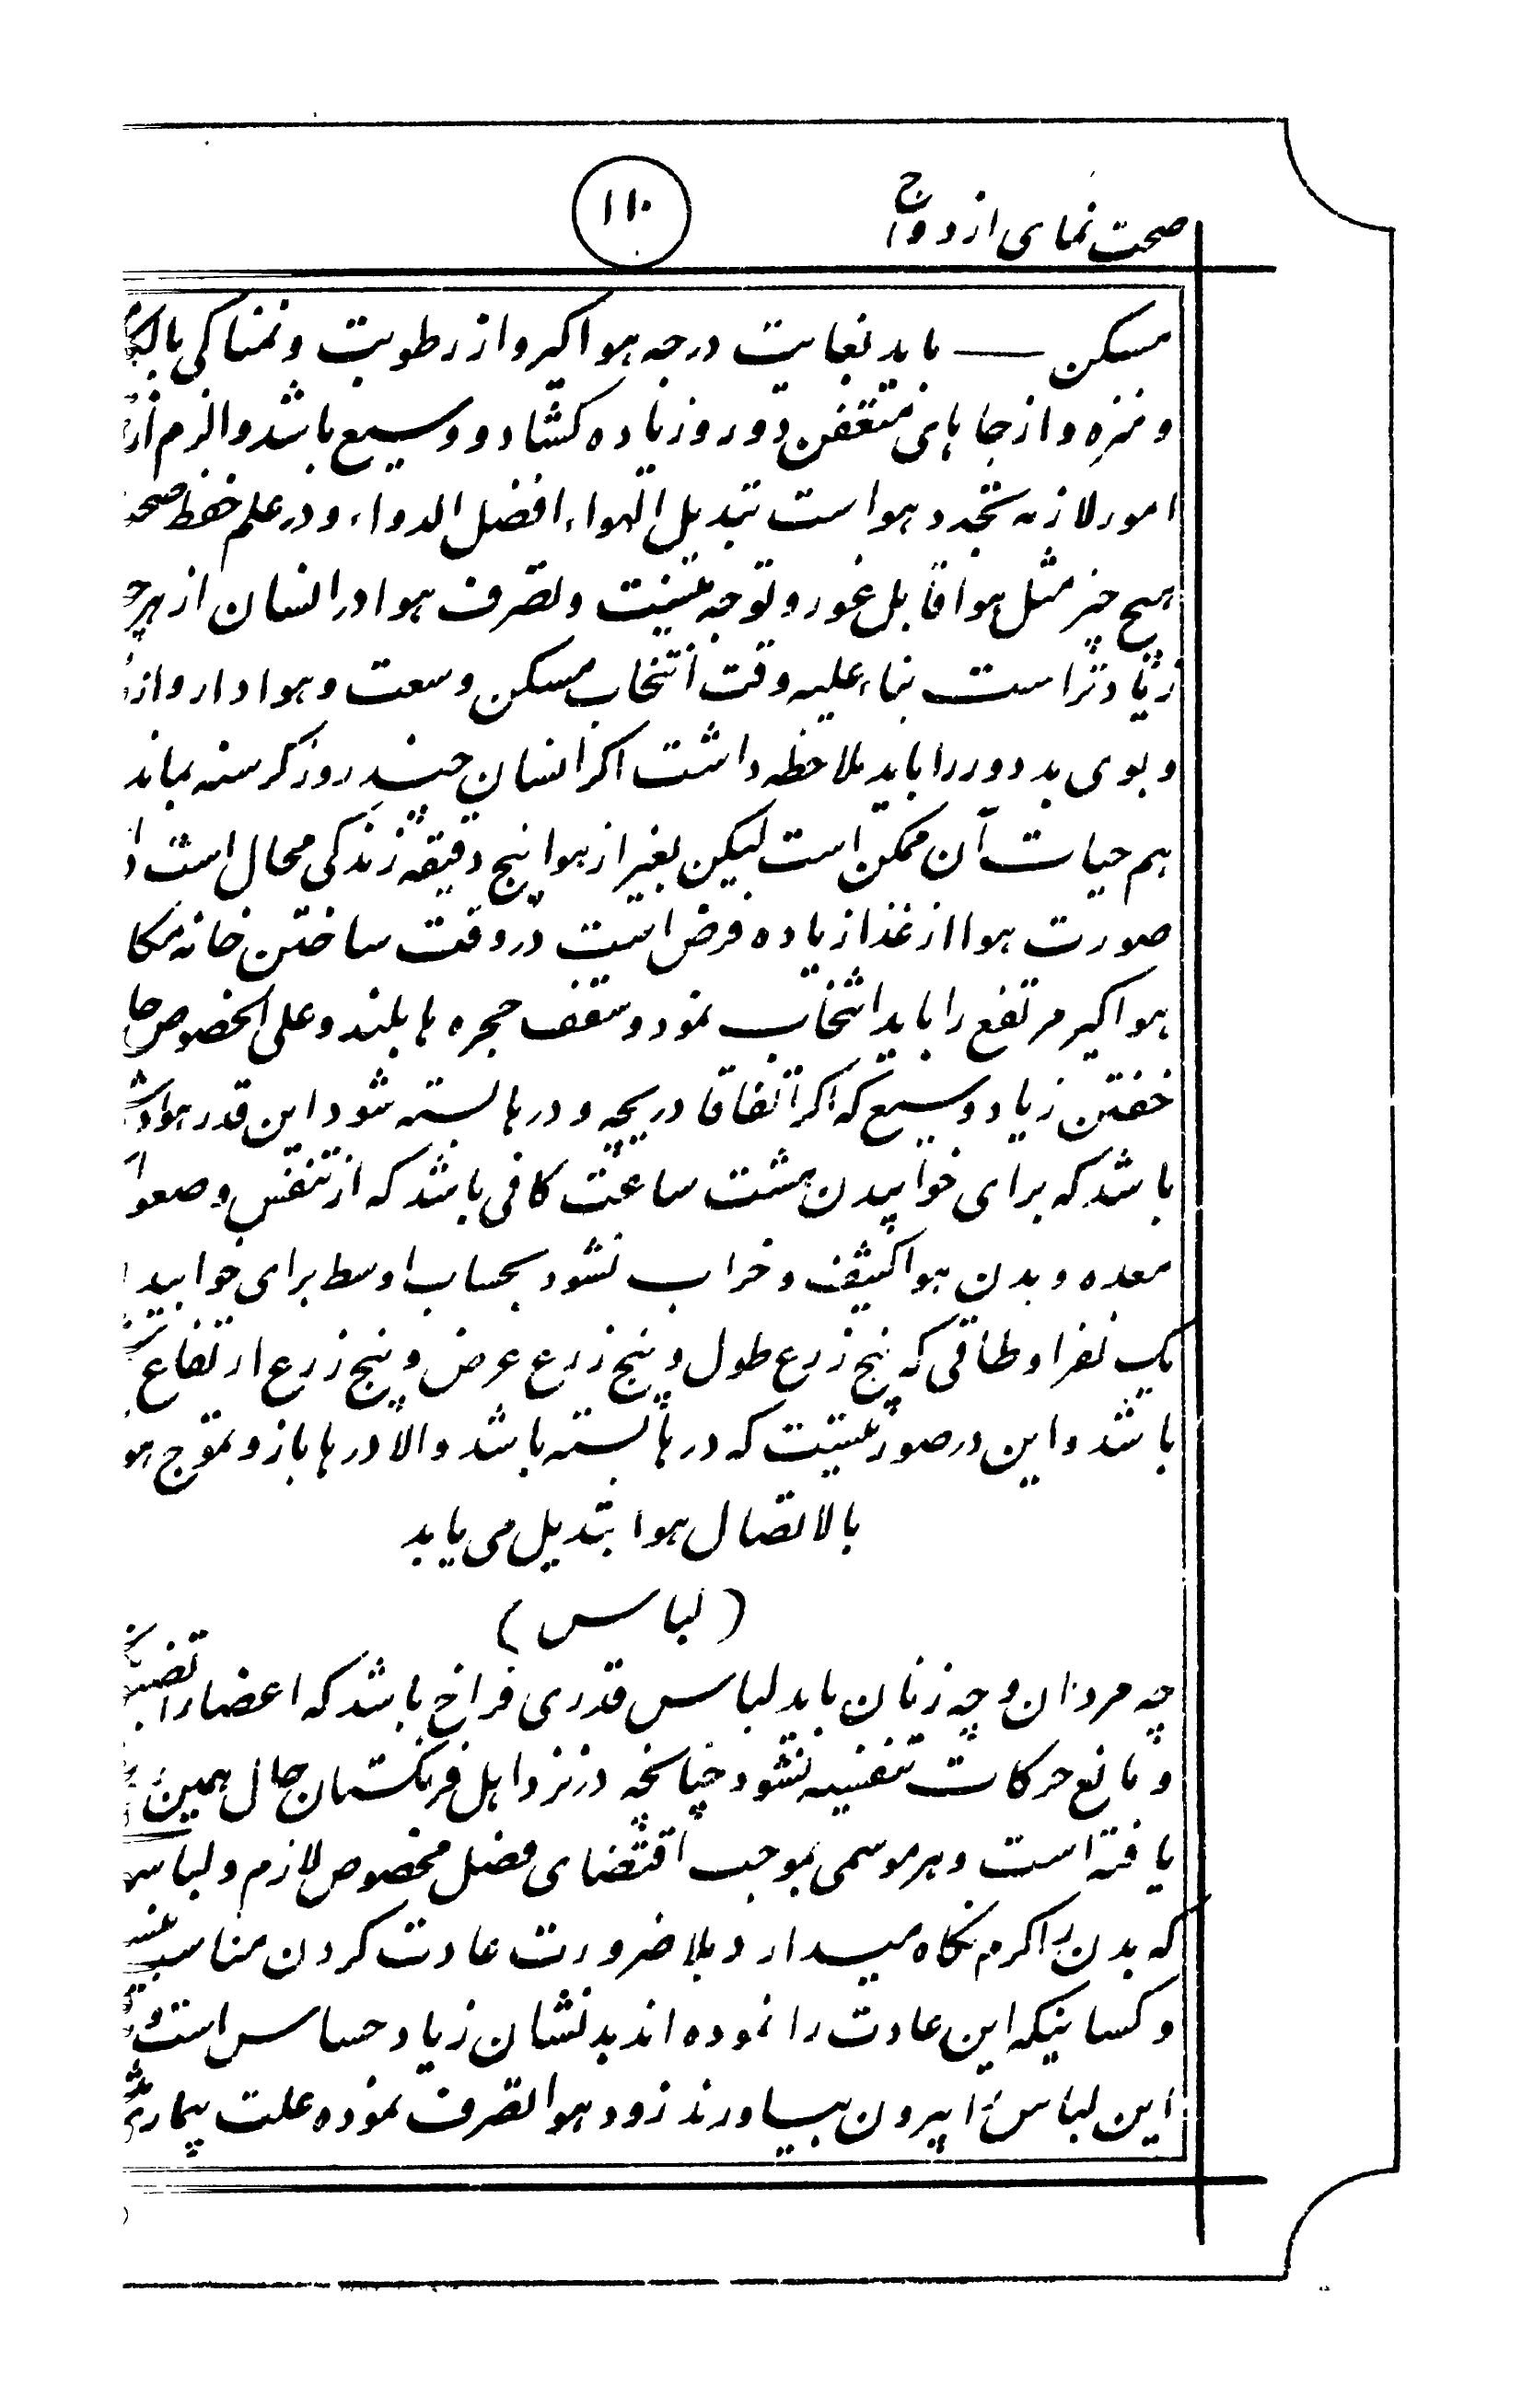 صحت نمای ازدواج
۱۱۰
مسکن — باید بغایت درجه هواگیر و از رطوبت و نمناکی
و نزه و از جاهای متعفن دور و زیاده کشاد و وسیع باشد و الزم از
امور لازمه تجدد هواست تبدیل الهواء افضل الدواء و در علم حفظ صحـ
هیچ چیز مثل هوا قابل غور و توجه نیست و تصرف هوا در انسان از هر چـ
زیادتر است بناء علیه وقت انتخاب مسکن وسعت و هوادار و از
و بوی بد دور را باید ملاحظه داشت اکر انسان چند روز کرسنه بماند
هم حیات آن ممکن است لیکن بغیر از هوا پنج دقیقه زندکی محال است
صورت هوا از غذا زیاده فرض است در وقت ساختن خانه مکا
هواکیر مرتفع را باید انتخاب نمود و سقف حجره ها بلند و علی الخصوص جا
خفتن زیاد وسیع که اکر اتفاقا دریچه و درها بسته شود این قدر هوا
باشد که برای خوابیدن هشت ساعت کافی باشد که از تنفس و صعو
معده و بدن هوا کثیف و خراب نشود بحساب اوسط برای خوابید
یک نفر اوطاقی که پنج زرع طول و پنج زرع عرض و پنج زرع ارتفاع
باشد و این در صورتیست که درها بسته باشد و الا درها باز و تموج هو
بالاتصال هوا تبدیل می یابد
(لباس)
چه مردان و چه زنان باید لباس قدری فراخ باشد که اعضا را
و مانع حرکات تنفسیه نشود چنانچه در نزد اهل فرنکستان حال همین
یافته است و هر موسمی بموجب اقتضای فصل مخصوص لازم و لباس
که بدن را کرم نکاه میدارد بلا ضرورت عادت کردن مناسب
و کسانیکه این عادت را نموده اند بدنشان زیاد حساس است و
این لباس را بیرون بیاورند زود هوا تصرف نموده علت بیماری